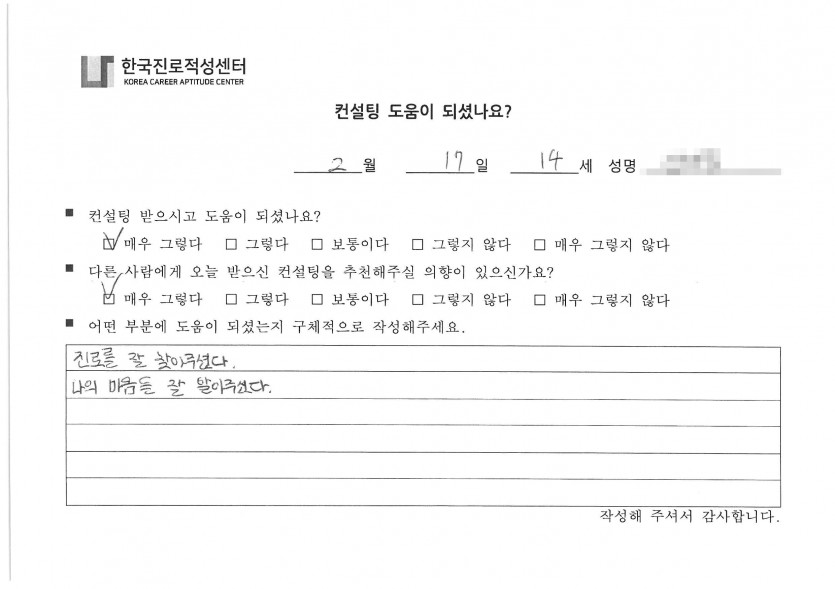 한국진로적성센터
KOREA CAREER APTITUDE CENTER
컨설팅 도움이 되셨나요?
2월 17일 14세 성명
■ 컨설팅 받으시고 도움이 되셨나요?
☑ 매우 그렇다 □ 그렇다 □ 보통이다 □ 그렇지 않다 □ 매우 그렇지 않다
■ 다른 사람에게 오늘 받으신 컨설팅을 추천해주실 의향이 있으신가요?
☑ 매우 그렇다 □ 그렇다 □ 보통이다 □ 그렇지 않다 □ 매우 그렇지 않다
■ 어떤 부분에 도움이 되셨는지 구체적으로 작성해주세요.
진로를 잘 찾아주셨다.
나의 마음을 잘 알아주셨다.
작성해 주셔서 감사합니다.